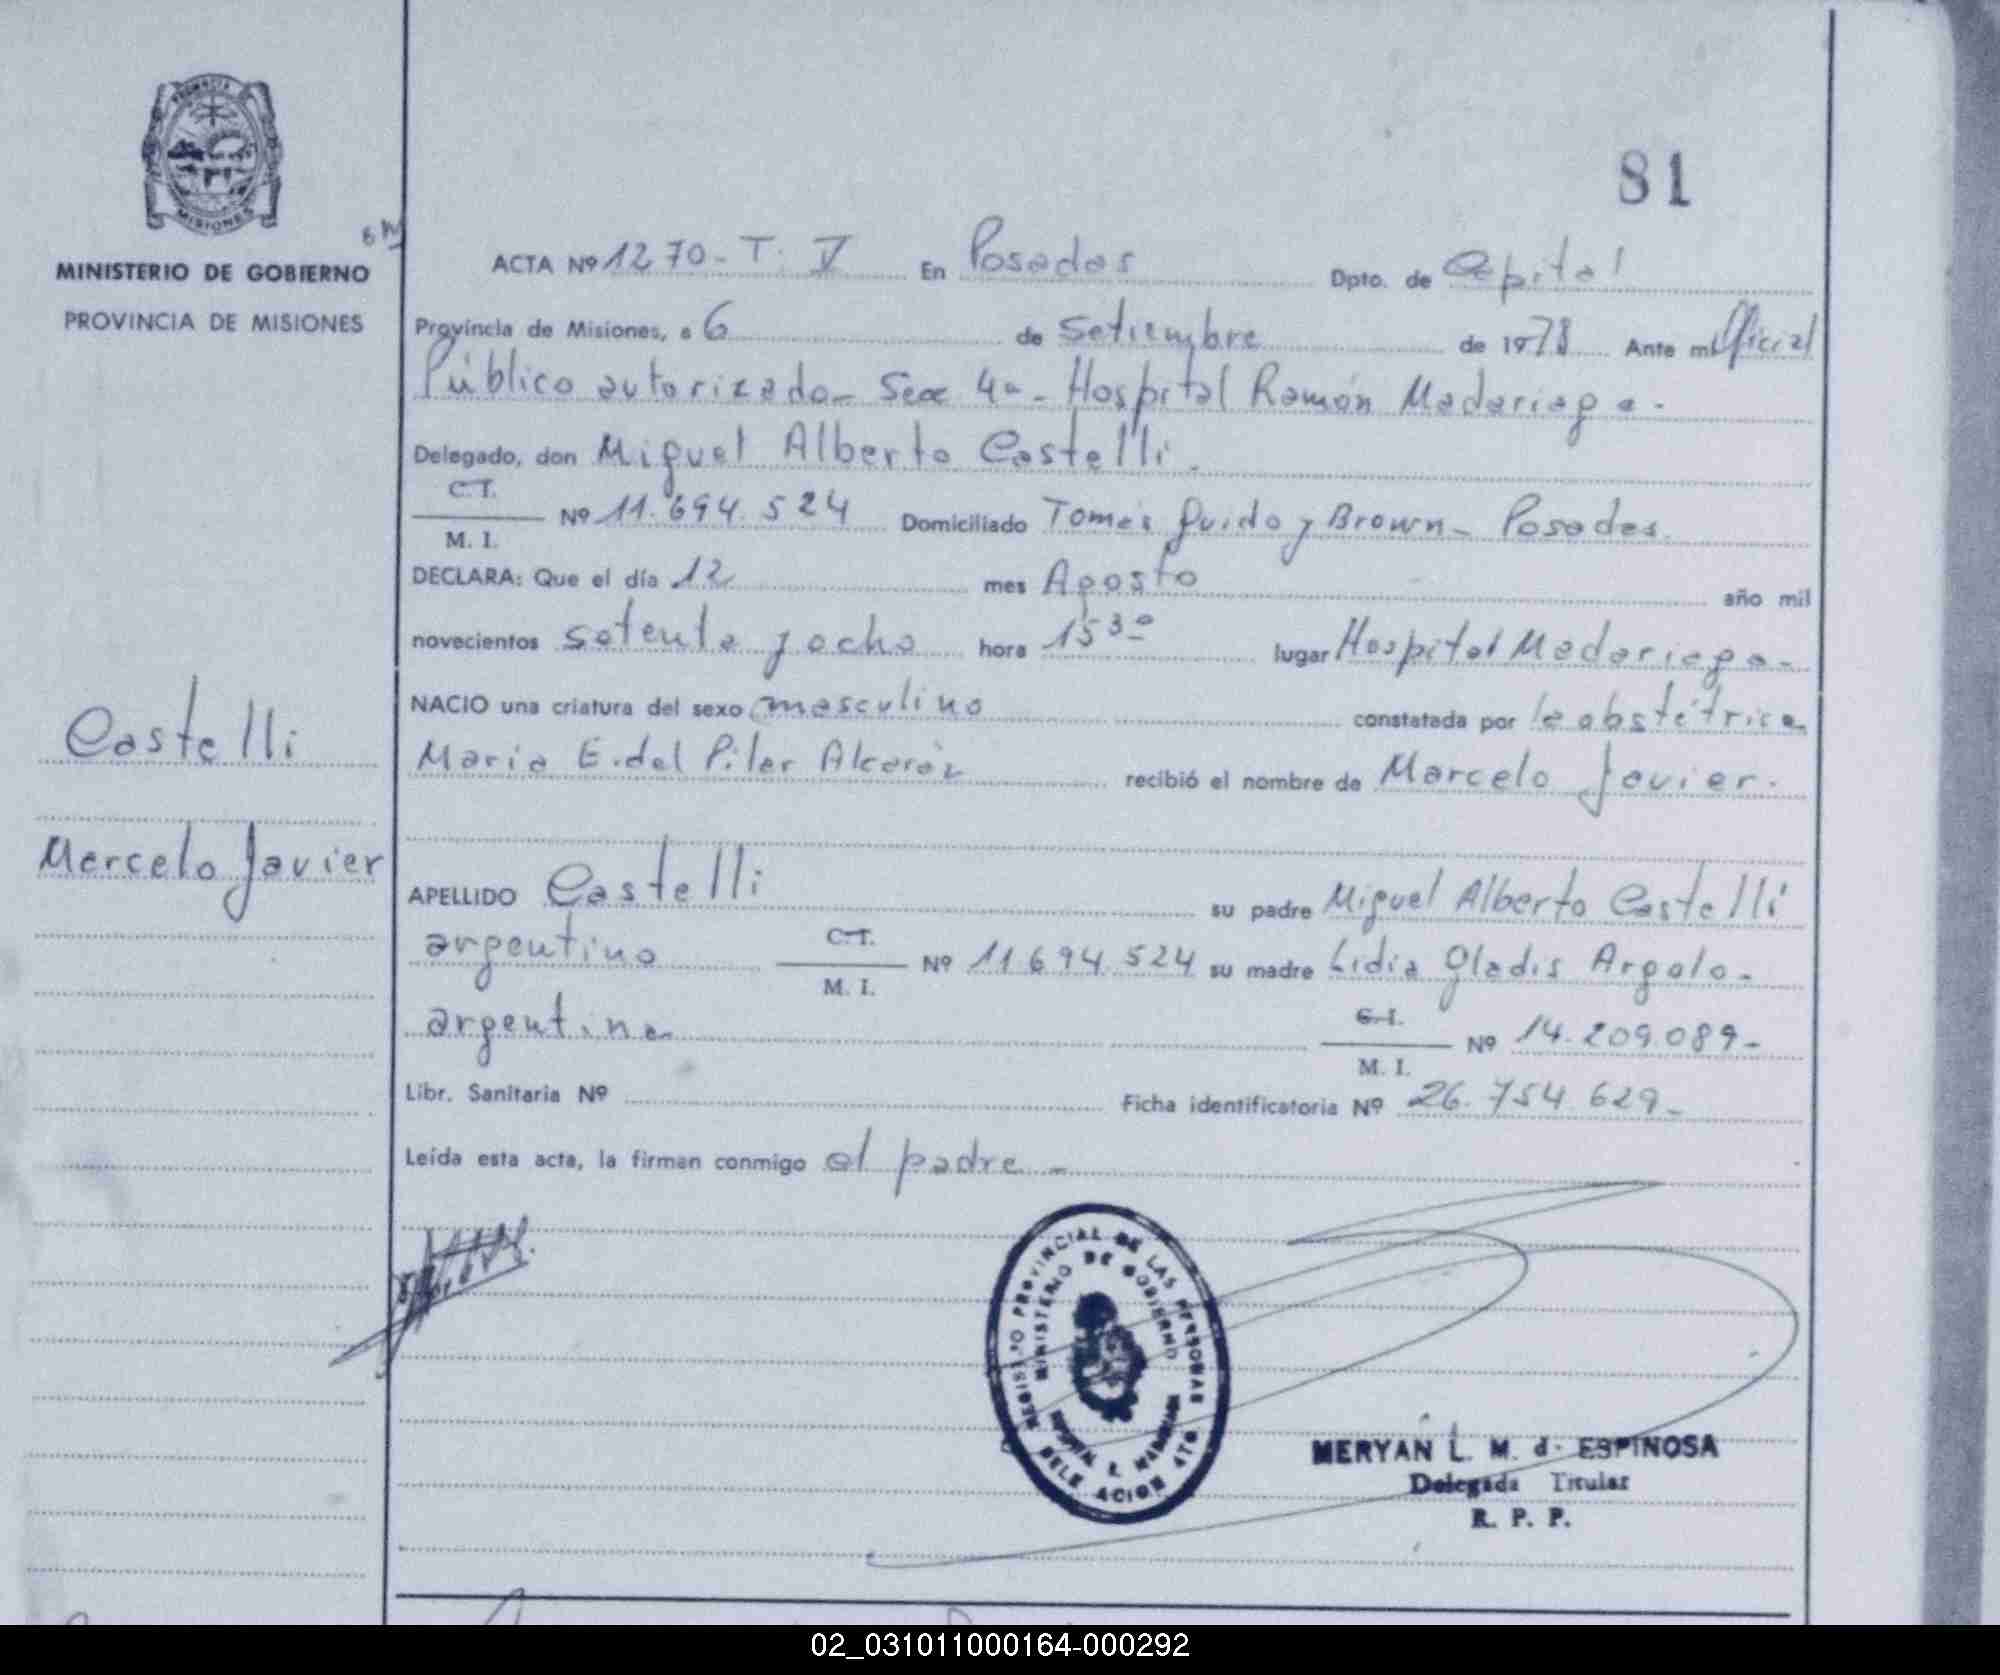 PROVINCIA DE
MISIONES
MINISTERIO DE GOBIERNO
PROVINCIA DE MISIONES
81
ACTA Nº 1270 - T. V En Posadas Dpto. de Capital
Provincia de Misiones, a 6 de Setiembre de 1978 Ante mi Oficial
Público autorizado - Secc 4ª - Hospital Ramón Madariaga -
Delegado, don Miguel Alberto Castelli.
C.I.
M. I. Nº 11.694.524 Domiciliado Tomás Guido y Brown - Posadas.
DECLARA: Que el día 12 mes Agosto año mil
novecientos setenta y ocho hora 15 30 lugar Hospital Madariaga -
NACIO una criatura del sexo masculino constatada por la obstétrica
María E. del Pilar Alcaráz recibió el nombre de Marcelo Javier.
Castelli
Marcelo Javier
APELLIDO Castelli su padre Miguel Alberto Castelli
argentino C.I. M. I. Nº 11694.524 su madre Lidia Gladis Argalo -
argentina C.I. M. I. Nº 14.209.089 -
Libr. Sanitaria Nº Ficha identificatoria Nº 26.754.629 -
Leída esta acta, la firman conmigo el padre -
REGISTRO PROVINCIAL DE LAS PERSONAS
MINISTERIO DE GOBIERNO
HOSPITAL R. MADARIAGA
DELEGACION 4TA
MERYAN L. M. de ESPINOSA
Delegada Titular
R. P. P.
02_031011000164-000292